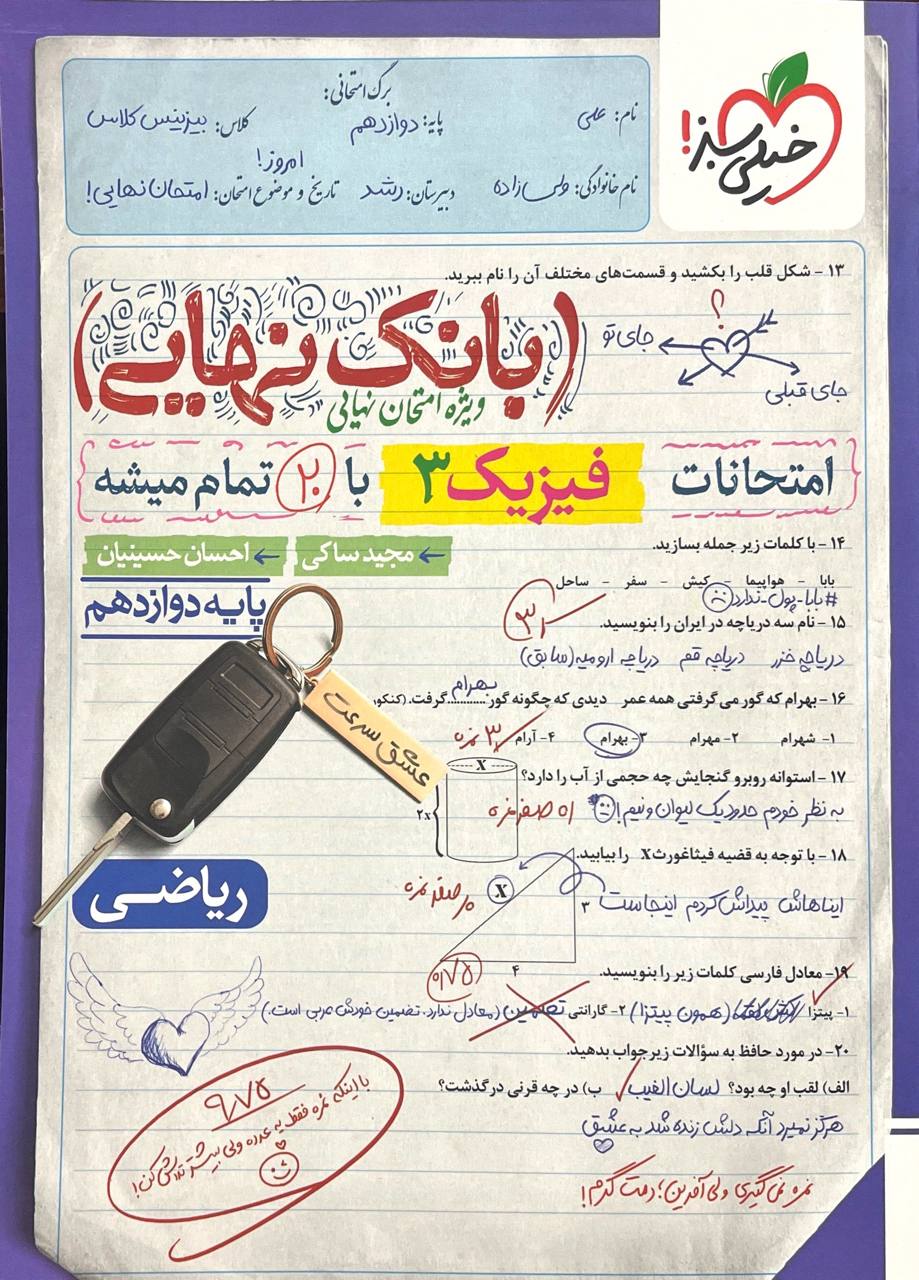 خیلی سبز!
برگ امتحانی:
نام: علی
پایه: دوازدهم
کلاس: بیزینس کلاس
نام خانوادگی: ولی زاده
دبیرستان: رشد
تاریخ و موضوع امتحان: امروز! امتحان نهایی!
۱۳ - شکل قلب را بکشید و قسمت‌های مختلف آن را نام ببرید.
؟
جای تو
جای قبلی
(بانک نهایی)
ویژه امتحان نهایی
امتحانات فیزیک ۳ با ۲۰ تمام میشه
۱۴ - با کلمات زیر جمله بسازید.
مجید ساکی
احسان حسینیان
بابا - هواپیما - کیش - سفر - ساحل
#بابا_پول_ندارد
پایه دوازدهم
۱۵ - نام سه دریاچه در ایران را بنویسید.
دریاچه خزر دریاچه قم دریاچه ارومیه (سابق)
۱۶ - بهرام که گور می گرفتی همه عمر دیدی که چگونه گور ....بهرام.... گرفت. (کنکور
۱- شهرام ۲- مهرام ۳- بهرام ۴- آرام
۳ نمره
عشق سرعت
۱۷ - استوانه روبرو گنجایش چه حجمی از آب را دارد؟
x
۲x
به نظر خودم حدود یک لیوان و نیم!
صفر نمره
۱۸ - با توجه به قضیه فیثاغورث x را بیابید.
x
۳
۴
ایناهاش پیداش کردم اینجاست
صفر نمره
ریاضی
۱۹- معادل فارسی کلمات زیر را بنویسید.
۰/۷۵
۱- پیتزا (همون پیتزا) ۲- گارانتی تضمین (معادل ندارد. تضمین خودش عربی است.)
۲۰- در مورد حافظ به سؤالات زیر جواب بدهید.
الف) لقب او چه بود؟ لسان الغیب ب) در چه قرنی درگذشت؟
هرگز نمیرد آنکه دلش زنده شد به عشق
نمره نمی‌گیری ولی آفرین؛ دمت گرم!
۹/۷۵
با اینکه نمره فقط یه عدده ولی بیشتر تلاش کن!